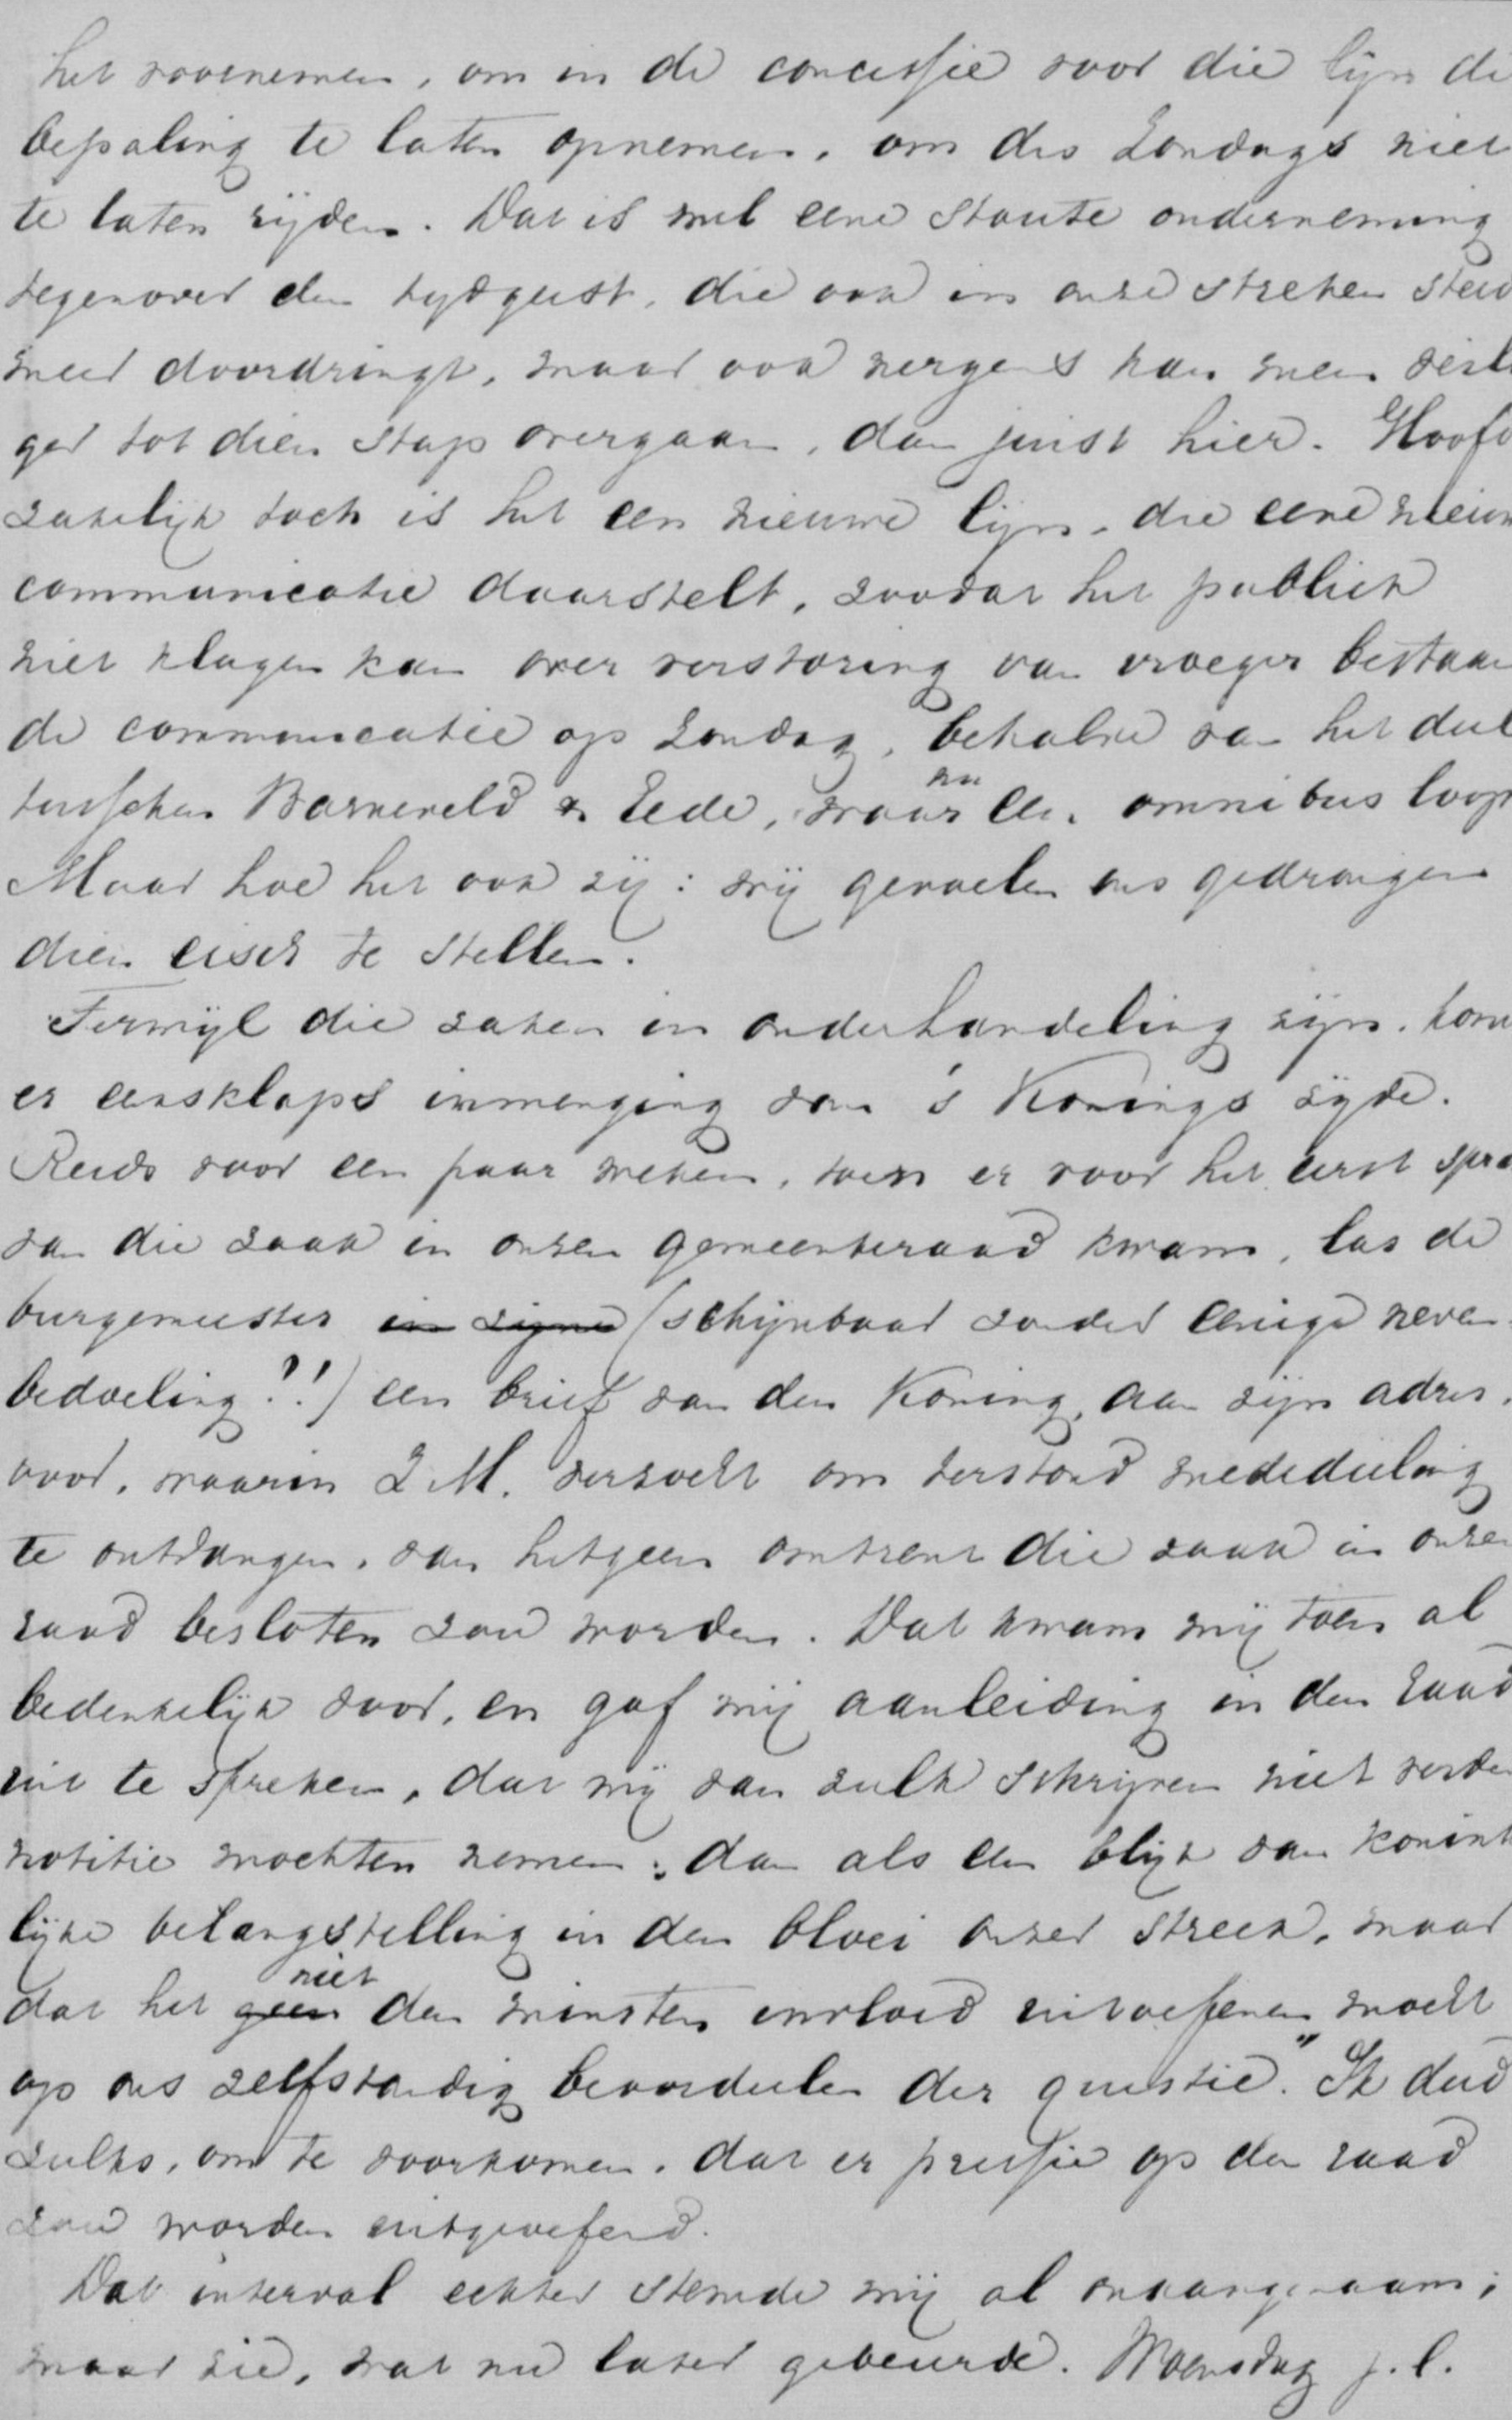 het voornemen, om in de concessie voor die lijn de
bepaling te laten opnemen, om des Zondags niet
te laten rijden. Dat is wel eene stoute onderneming
tegenover den tydgeest, die ook in onze streken steed
meer doordringt, maar ook nergens kan men veili
ger tot dien stap overgaan, dan juist hier. Hoofd
zakelijk toch is het een nieuwe lijn, die eene nieuw
communicatie daarstelt, zoodat het publiek
niet klagen kan over verstoring van vroeger bestaan
de communicatie op Zondag, behalve van het deel
tusschen Barneveld & Eede, waar nu een omnibus loop
Maar hoe het ook zij: wij gevoelen ons gedrongen
dien eisch te stellen.
Terwijl die zaken in onderhandeling zijn, kom
er eensklaps inmenging van 's Konings zijde.
Reeds voor een paar weken, toen er voor het eerst spra
van die zaak in onzen gemeenteraad kwam, las de
burgemeester in zijne (schijnbaar zonder eenige neven-
bedoeling?!) een brief van den Koning, aan zijn adres,
voor, waarin Z.M. verzocht om terstond mededeeling
te ontvangen, van hetgeen omtrent die zaak in onzen
raad besloten zou worden. Dat kwam mij toen al
bedenkelijk voor, en gaf mij aanleiding in den raad
uit te spreken, dat wij van zulk schrijven niet verder
notitie mochten nemen, dan als een blijk van konink
lijke belangstelling in den bloei onzer streek, maar
dat het geen niet den minsten invloed uitoefenen mocht
op ons zelfstandig beoordeelen der questie." Ik deed
zulks, om te voorkomen, dat er pressie op den raad
zou worden uitgeoefend.
Dat interval echter stemde mij al onaangenaam;
maar zie, wat nu later gebeurde. Woensdag j.l.